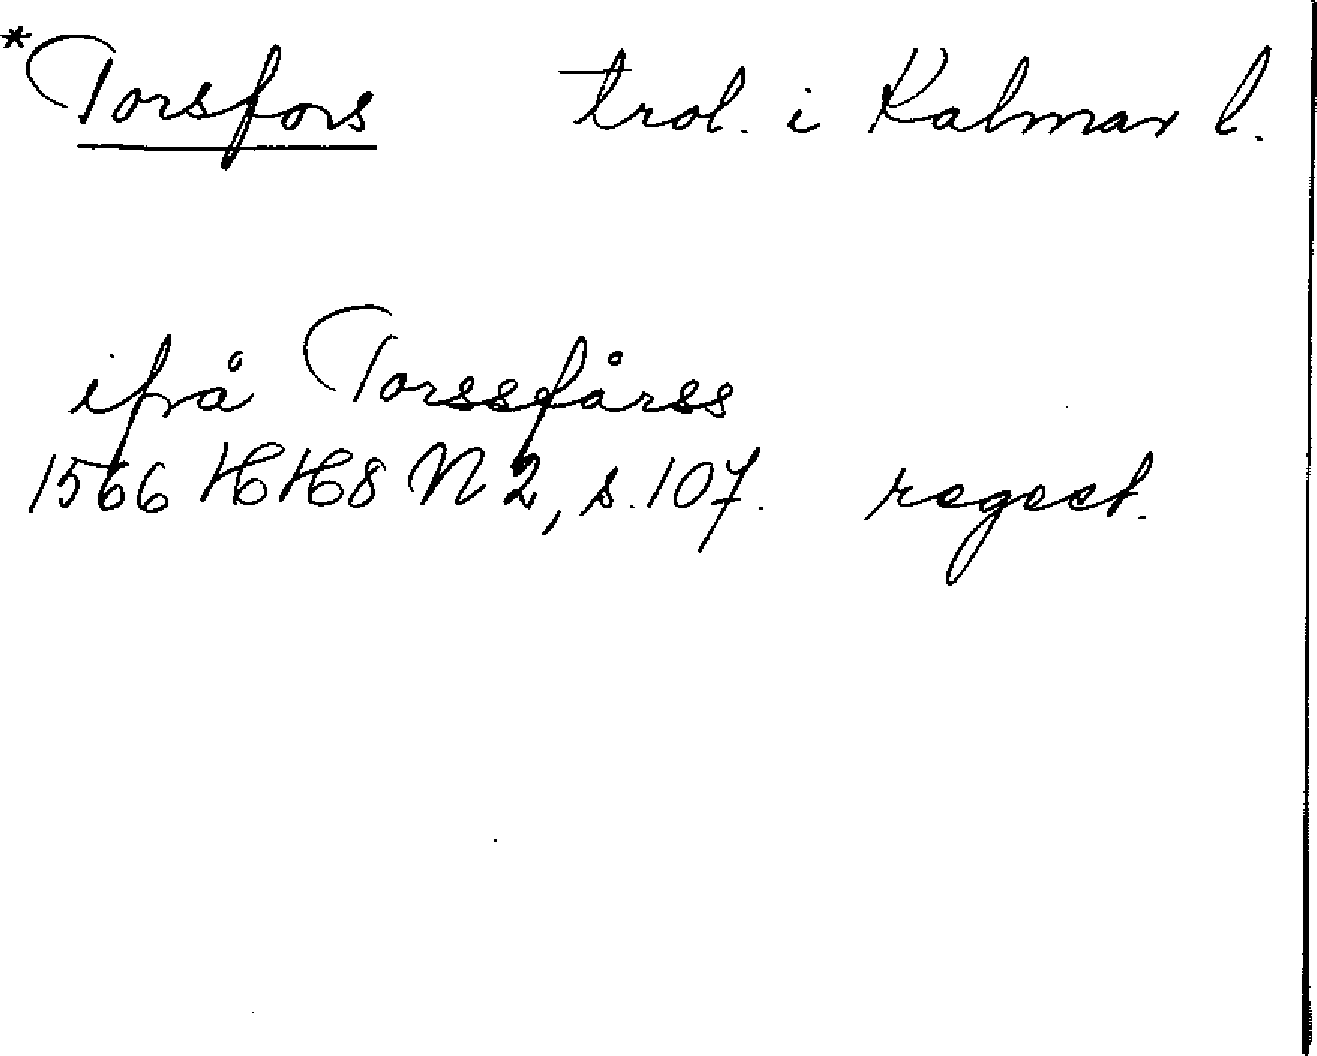 *Torsfors trol. i Kalmar l.
ifrå Torssfårss
1566 HH8 N 2, s. 107. regest.